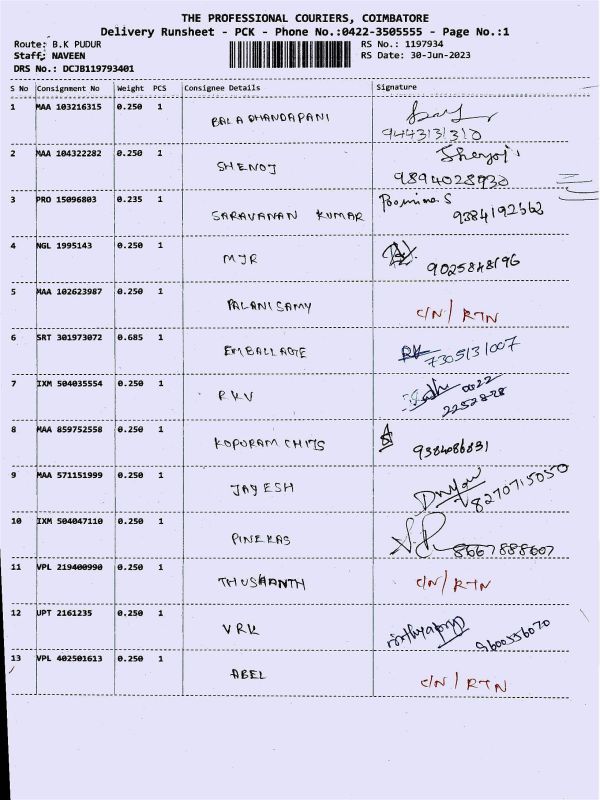 THE PROFESSIONAL COURIERS, COIMBATORE
Delivery Runsheet - PCK - Phone No.:0422-3505555 - Page No.:1
Route: B.K PUDUR RS No.: 1197934
Staff: NAVEEN RS Date: 30-Jun-2023
DRS No.: DCJB119793401
S No Consignment No Weight PCS Consignee Details Signature
1 MAA 103216315 0.250 1 BALA DHANDAPANI
9443131310
2 MAA 104322282 0.250 1 SHENOJ
3 PRO 15096803 0.235 1 SARAVANAN KUMAR
4 NGL 1995143 0.250 1 MJR
5 MAA 102623987 0.250 1 PALANISAMY C/N / RTN
6 SRT 301973072 0.685 1 7305131007
7 IXM 504035554 0.250 1 RKV
8 MAA 859752558 0.250 1 KOPURAM CHITS
9 MAA 571151999 0.250 1 JAYESH 8270715050
10 IXM 504047110 0.250 1 8667888607
11 VPL 219400990 0.250 1 THUSHANTH C/N / RTN
12 UPT 2161235 0.250 1 VRK 9600556070
13 VPL 402501613 0.250 1 ABEL C/N / RTN